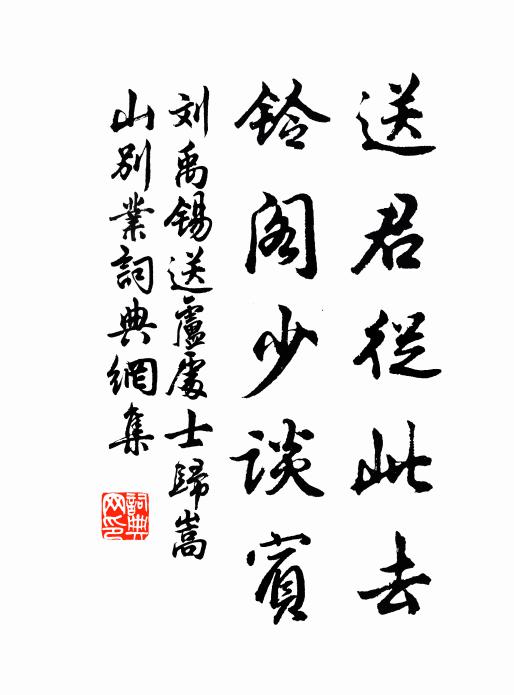 送君從此去
鈴閣少談賓
刘禹锡送盧處士歸嵩
山别業詞典網集
詞典網印